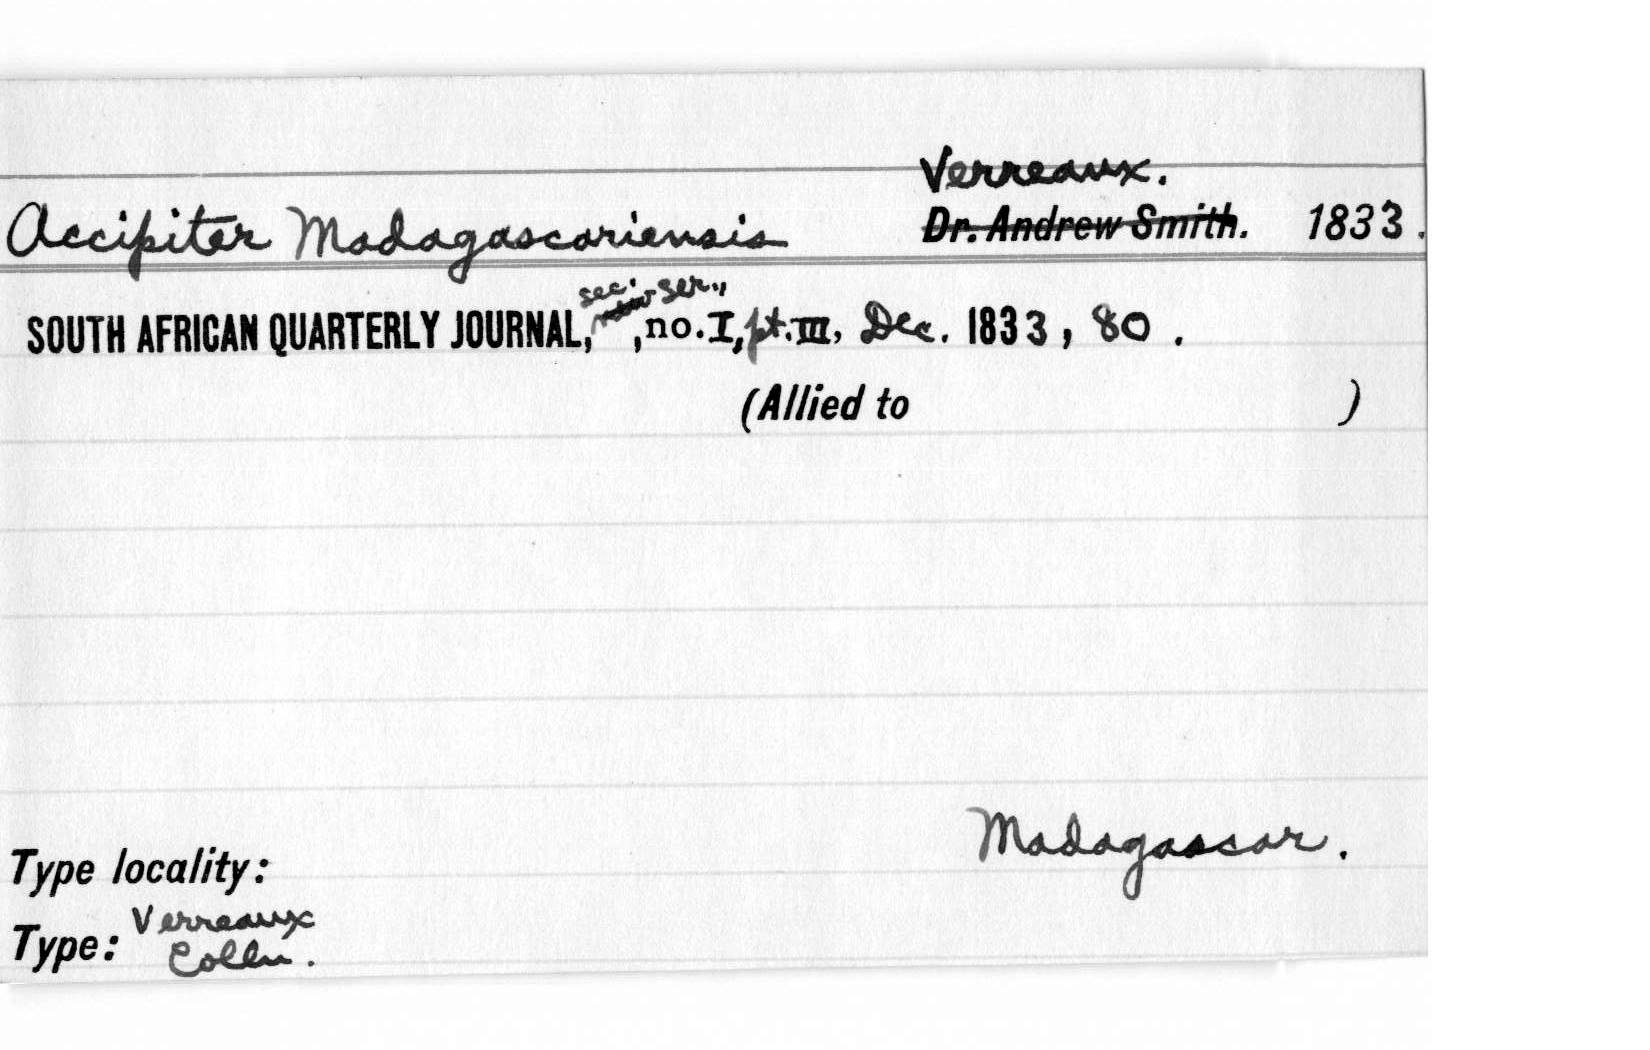 Verreaux.
Accipiter Madagascariensis Dr. Andrew Smith. 1833.
sec. ser.,
SOUTH AFRICAN QUARTERLY JOURNAL, , no. I, pt. III, Dec. 1833, 80.
(Allied to )
Madagascar.
Type locality:
Verreaux
Type: Colln.